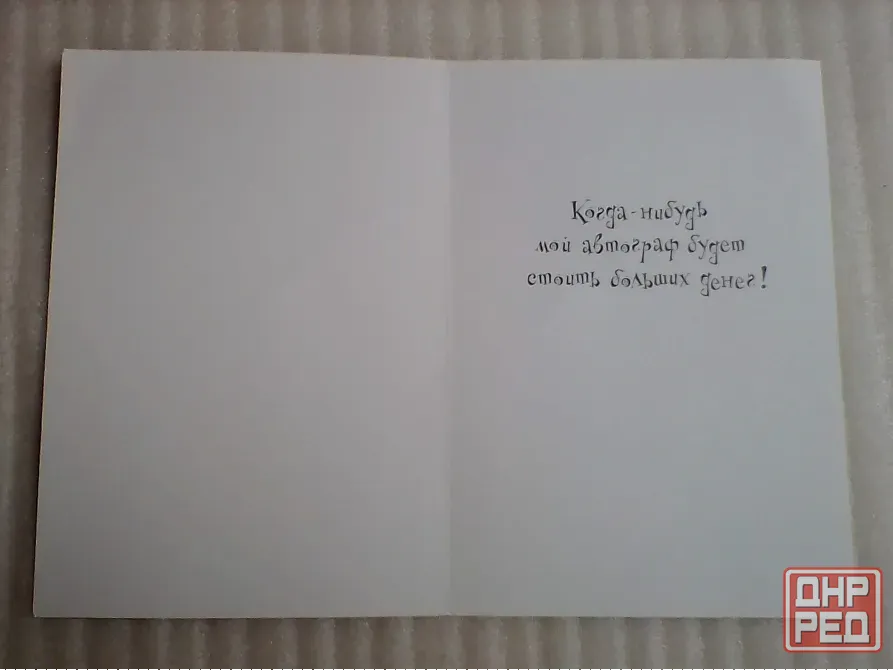 Когда-нибудь
мой автограф будет
стоить больших денег!
ДНР
РЕД